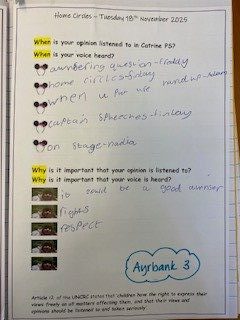 Home Circles – Tuesday 18th November 2025
When is your opinion listened to in Catrine PS?
When is your voice heard?
answering question-Freddy
home circles-Finlay
when u put up ure hand
captain speeches-Finlay
on stage-nadia
Why is it important that your opinion is listened to?
Why is it important that your voice is heard?
it could be a good answer
rights
respect
Ayrbank 3
Article 12 of the UNCRC states that 'children have the right to express their
views freely on all matters affecting them, and that their views and
opinions should be listened to and taken seriously'.